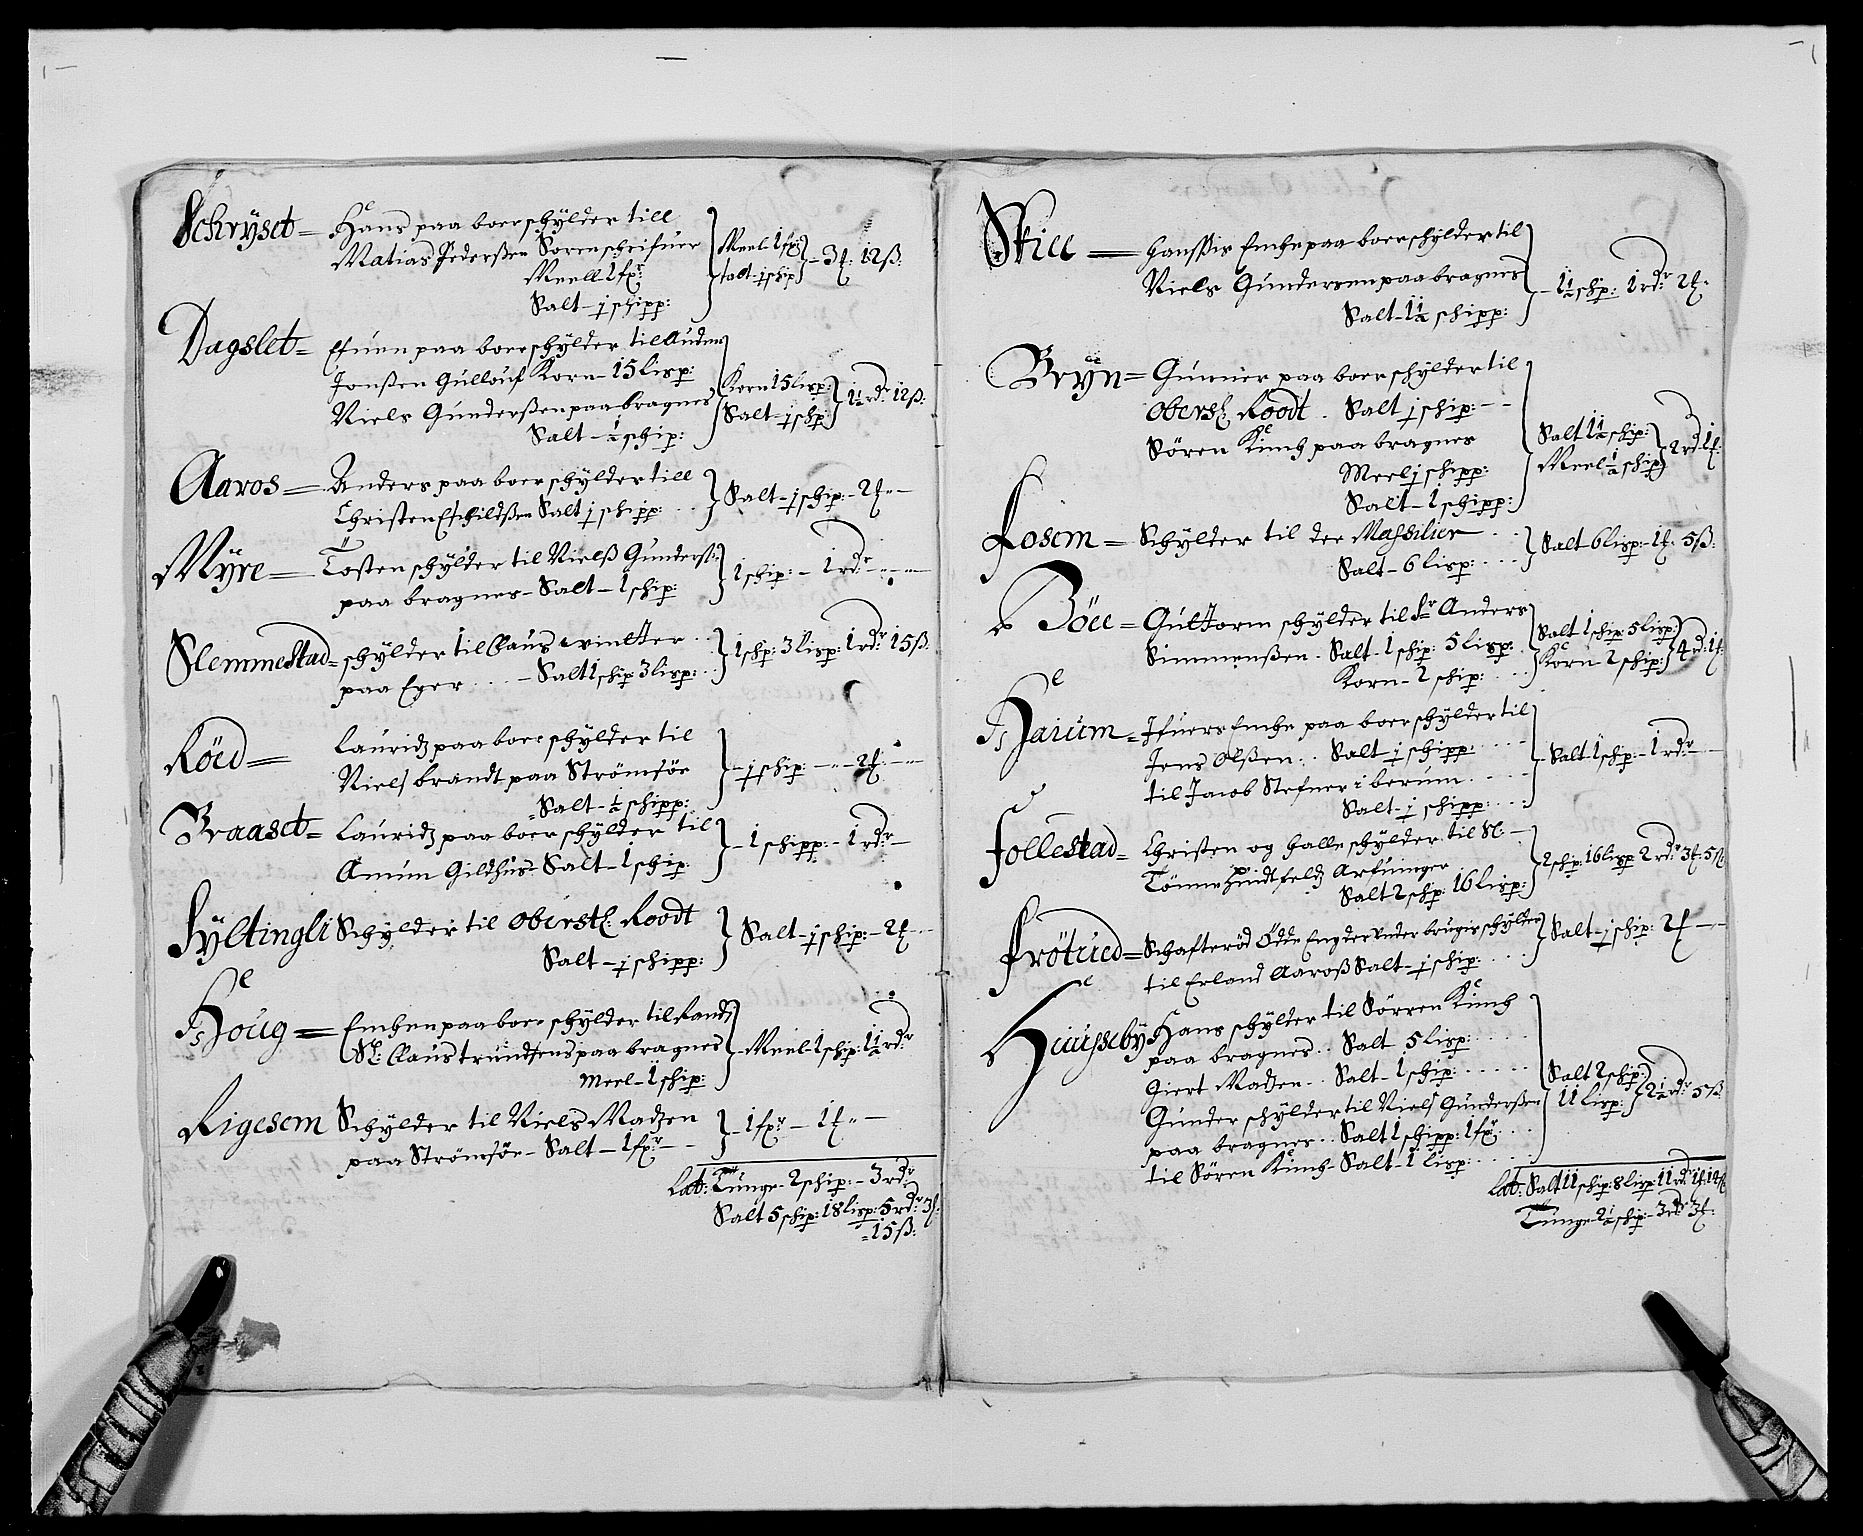 Schrÿset = Hans paa boer schÿlder till
Matias Pedersßen Sorenschrifuer
Meell 1 fxr:
Salt - j schipp:
Meel 1 fxr:
salt - j schip
- 3 f: 12 ß:
Dagslet = Efuen paa boer schÿlder til Auden
Jonßen Gullouf Korn - 15 lisp:
Niels Gunderßen paa bragnes
Salt - ½ schip:
Korn 15 lisp:
Salt - j schp:
1½ rdr 12 ß:
Aaros = Anders paa boer schÿlder till
Christen Eschildßen Salt j schipp:
Salt - j schip: - 2 f -
Mÿre = Tosten schÿlder til Nielß Gunderß:
paa bragnes - Salt - 1 schip:
1 schip: - 1 rdr - - -
Slemmestad = schÿlder til Claus wintter
paa Eger - Salt 1 schip 3 lisp:
1 schp: 3 lisp: 1 rdr 15 ß:
Röed = Lauridz paa boer schÿlder til
Niels brandt paa Strömsöe
Salt - ½ schipp:
- j schip: - 2 f: -
Braaset = Lauridz paa boer schÿlder til
Amun Gildhus Salt - 1 schip:
- 1 schipp: - 1 rdr -
Sÿltingli Schÿlder til Oberstl: Roodt
Salt - j schipp:
Salt - j schip: - 2 f -
Houg = Enchen paa boer schÿlder til
Sl: Claus trundsens paa bragnes
Meel - 1 schip:
- Meel - 1 schip: 1½ rdr
Rigesem Schÿlder til Niels Madzen
paa Strömsöe - Salt - 1 fxr -
- 1 fxr - 1 f -
Lat: Tunge - 2 schip: - 3 rdr
Salt 5 schip: 18 lisp: 5 rdr 3 f:
= 15 ß:
Skiee = Hanssis Enche paa boer schÿlder til
Niels Gundersen paa bragnes
Salt - 1½ schipp:
- 1½ schip: 1 rdr 2 f
Brÿn = Gunner paa boer schÿlder til
Oberstl Roodt . Salt j schip: - -
Sören Kinch paa bragnes
Meel j schipp:
Salt - 1 schipp:
Salt 1½ schip:
Meel ½ schip
2 rd 1 f:
Losem = Schÿlder til der Massilier
Salt - 6 lisp:
Salt 6 lisp: - 1 f 5 ß:
Böee = Guttorm schÿlder til Sr Anders
Simmenßen . Salt - 1 schip: 5 lisp:
Korn - 2 schip:
Salt 1 schip: 5 lisp:
Korn - 2 schip:
4 rd: 1 f:
Harum = Ifuers Enche paa boer schÿlder til
Jens Olßen .. Salt - j schipp:
til Jacob Stefner i berum
Salt - j schipp:
- Salt 1 schip: - 1 rdr -
Follestad = Christen og Halle schÿlder til Sl: -
Tönne Huidtfeldz Arfuinger
Salt 2 schip: 16 lisp:
2 schip: 16 lisp 2 rdr 3 f: 5 ß
Frötued = Schafteröd Ödde Engder under bruger schÿlder
til Erland Aaroß Salt - j schip:
Salt - j schip: 2 f - -
Huusseby Hans schÿlder til Sörren Kinch
paa bragnes .. Salt 5 lisp:
Giert Madzen .. Salt - 1 schip:
Gunder schÿlder til Niels Gunderßen
paa bragnes .. Salt 1 schipp: 1 fxr:
til Sören Kinch - Salt - 1 lisp:
Salt 2 schip:
11 lisp:
2½ rdr 5 ß:
Lat: Salt 11 schip: 8 lisp: 11 rdr 1 f: 14 ß
Tunge 2½ schip: - 3 rdr 3 f: